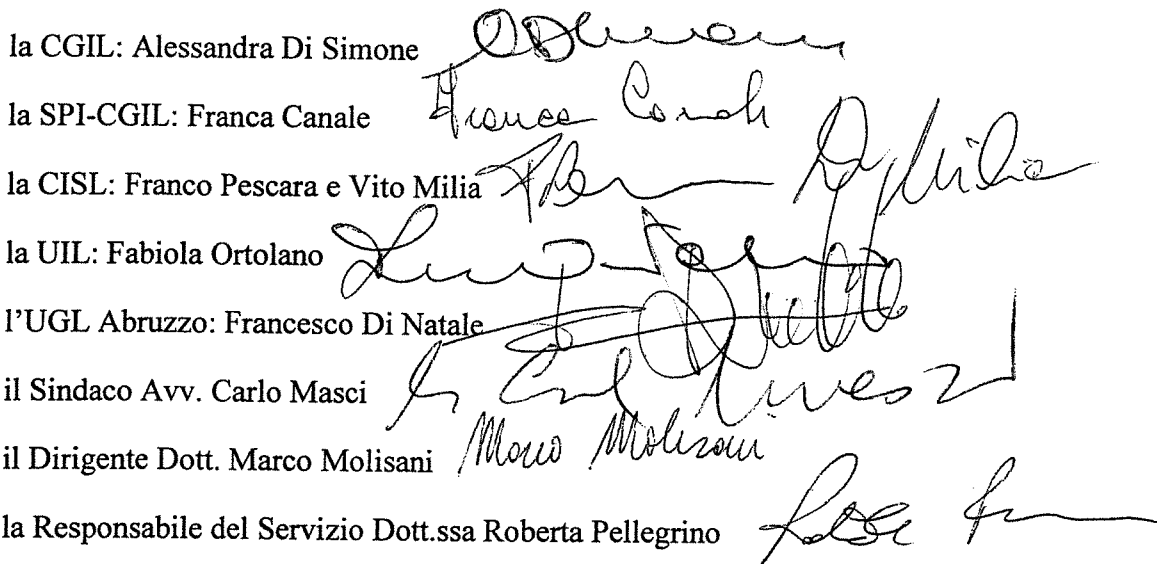 la CGIL: Alessandra Di Simone
la SPI-CGIL: Franca Canale Franca Canale
la CISL: Franco Pescara e Vito Milia Milia
la UIL: Fabiola Ortolano
l'UGL Abruzzo: Francesco Di Natale
il Sindaco Avv. Carlo Masci
il Dirigente Dott. Marco Molisani Marco Molisani
la Responsabile del Servizio Dott.ssa Roberta Pellegrino